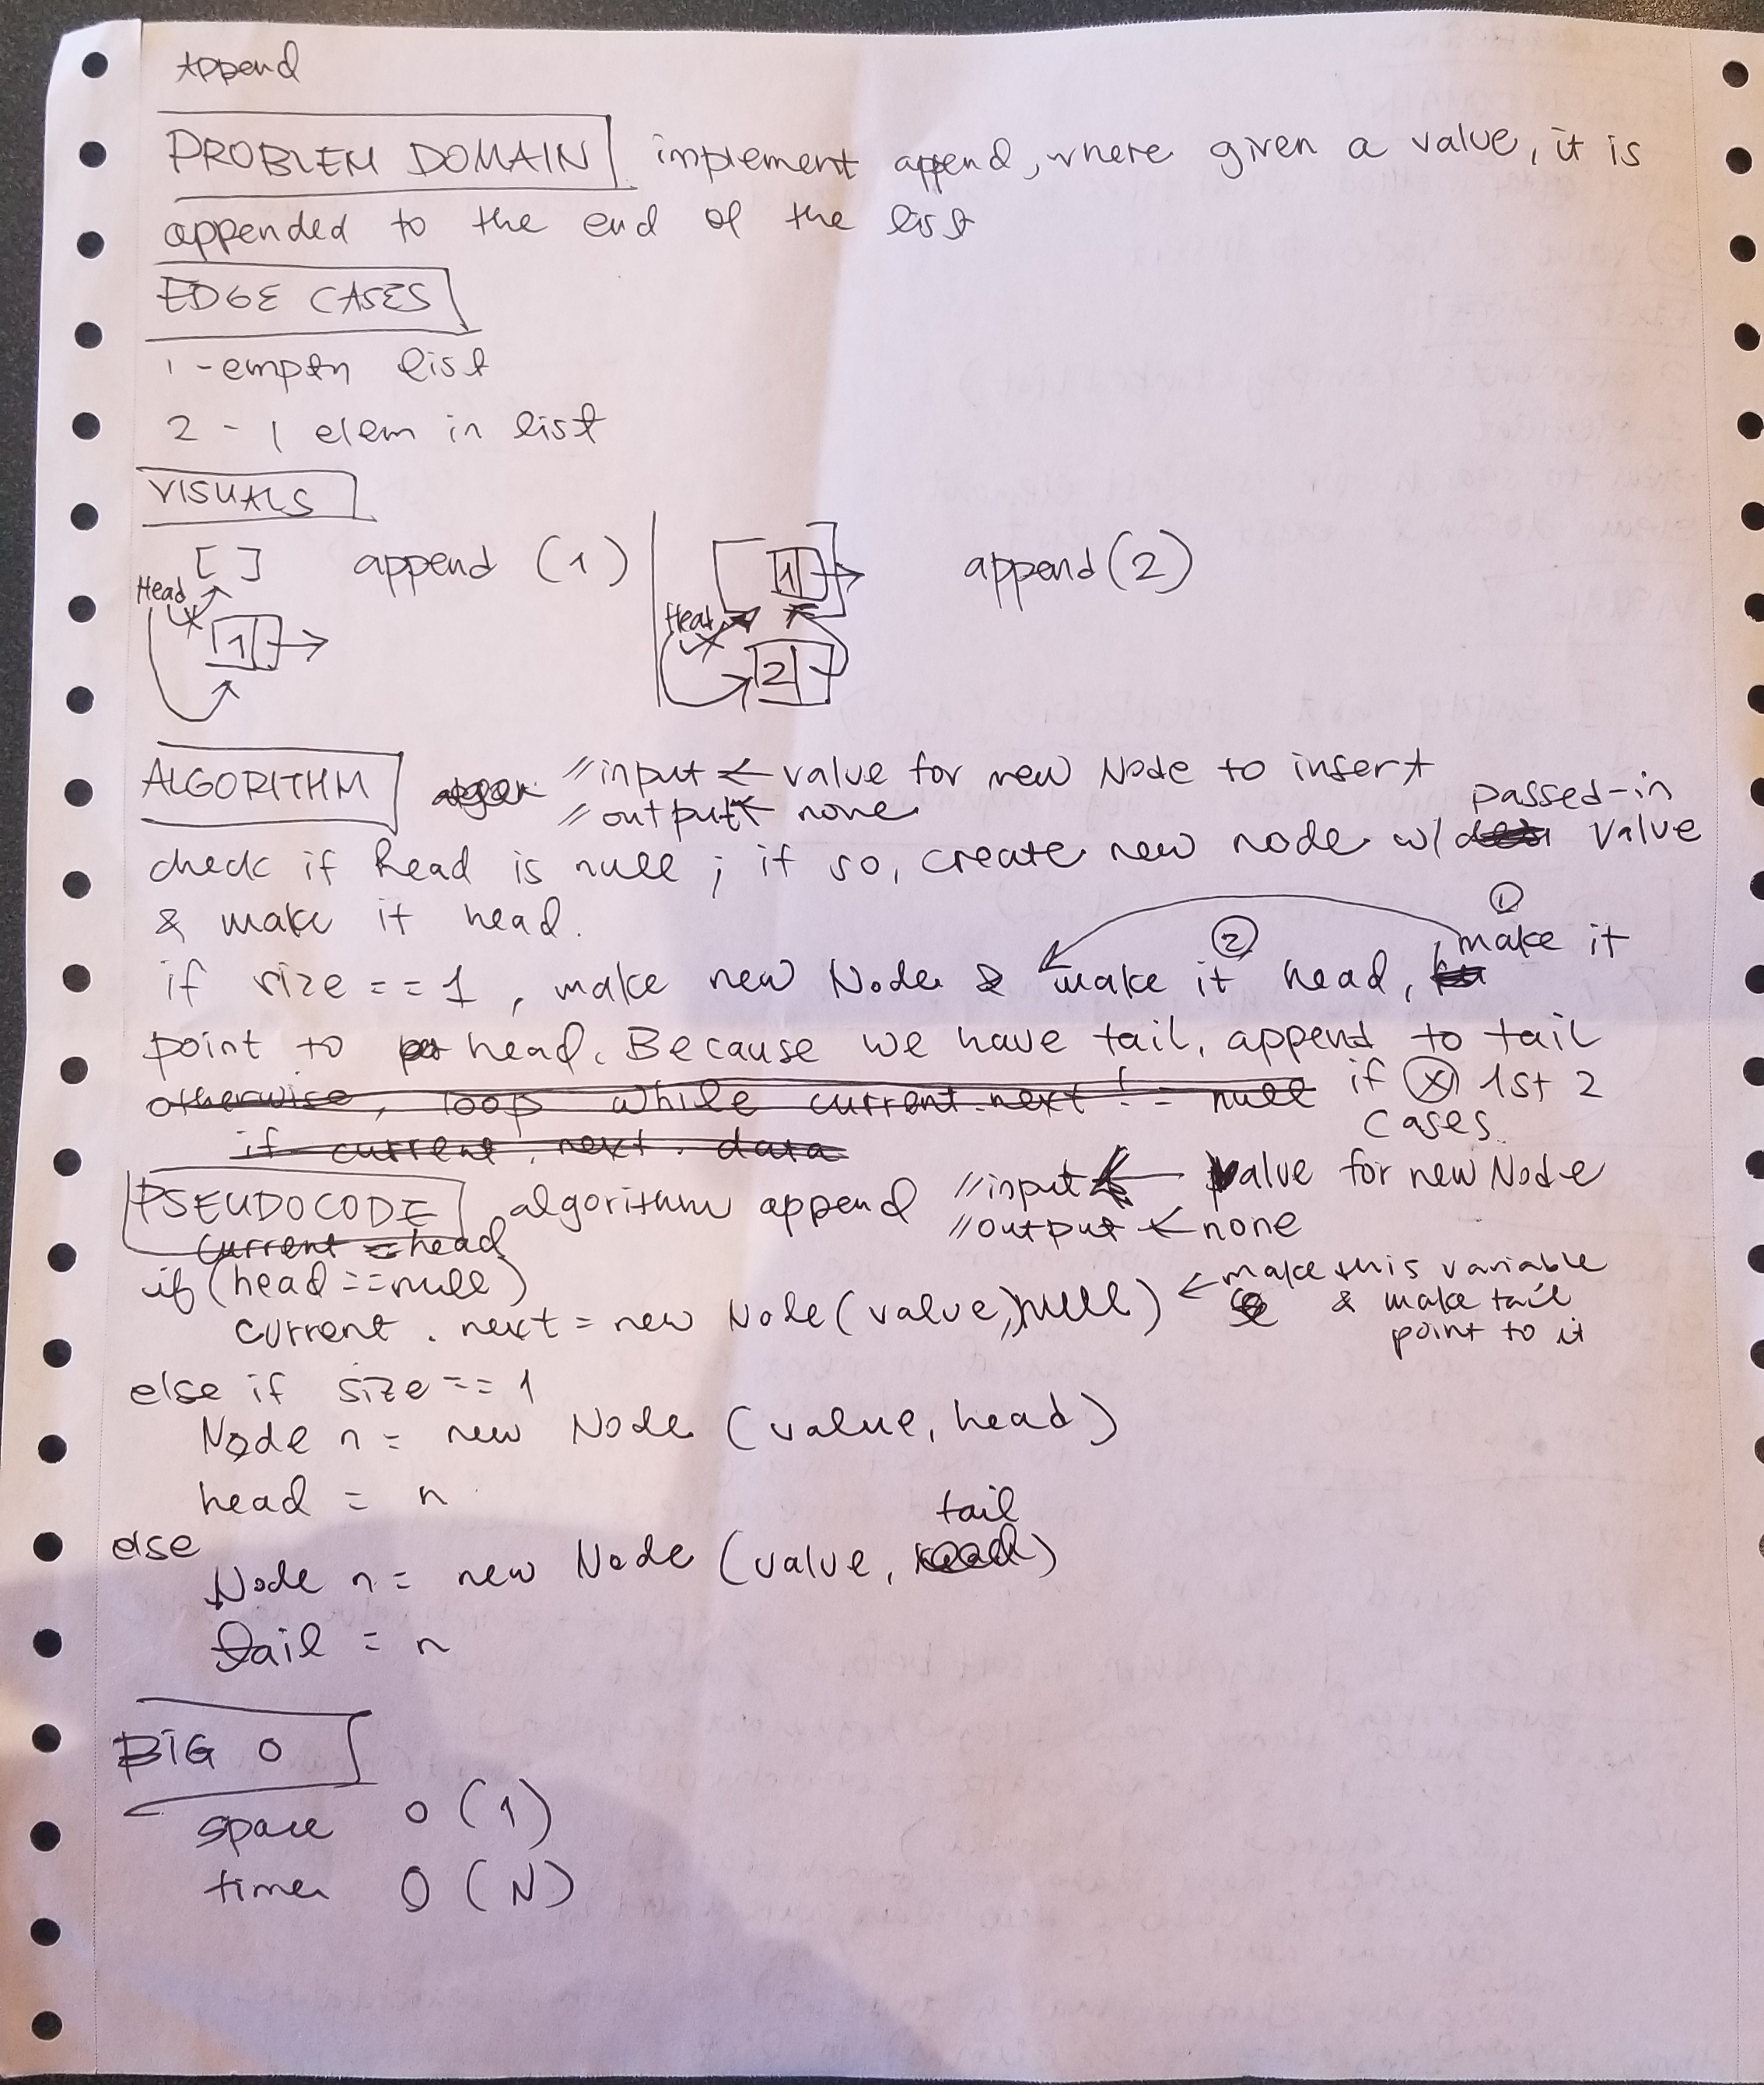 Append
PROBLEM DOMAIN implement append, where given a value, it is
appended to the end of the list
EDGE CASES
1 - empty list
2 - 1 elem in list
VISUALS
[ ] append (1) 1 append(2)
Head 1 Head 2
ALGORITHM //input ← value for new Node to insert
//output ← none
passed-in
check if head is null ; if so, create new node w/ value
& make it head.
① 
② make it
if size == 1, make new Node & make it head,
point to head. Because we have tail, append to tail
otherwise, loop while current.next != null if ⓧ 1st 2
cases.
if current.next.data
PSEUDOCODE algorithm append //input ← value for new Node
//output ← none
current = head
if (head == null)
current.next = new Node(value, null) ← make this variable
& make tail
point to it
else if size == 1
Node n = new Node (value, head)
head = n
tail
else
Node n = new Node (value, head)
tail = n
BIG O
space O(1)
time O(N)